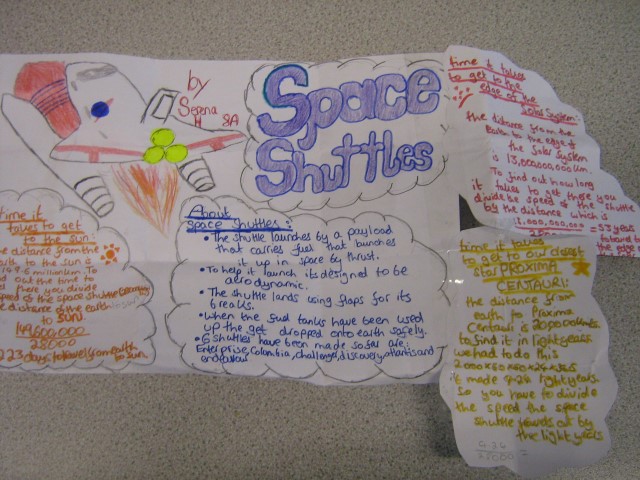 by
Serena
H 8A
Space
Shuttles
time it
takes to get
to the sun
distance from the
sun is
149.6 million km. To
out the time to
there you divide
speed of the space shuttle
distance of the earth
to sun
149,600,000
28000
223 days to travel from earth
to sun.
About
space shuttles:
• The shuttle launches by a payload
that carries fuel that launches
it up in space by thrust.
• To help it launch its designed to be
aerodynamic.
• The shuttle lands using flaps for its
breaks.
• When the fuel tanks have been used
up the get dropped onto earth safely.
• 6 shuttles have been made so far are:
Enterprise, Colombia, challenger, discovery, atlantis and
endeavour
time it takes
to get to the
edge of the
solar system:
the distance from the
Earth to the edge of
the Solar System
is 13,000,000,000 km.
To find out how long
it takes to get there you
divide the speed of the shuttle
by the distance which is
= 53 years
to travel to
the
time it takes
to get to our closest
star PROXIMA
CENTAURI:
the distance from
earth to Proxima
Centauri is
to find it in lightyears
we had to do this
it made lightyears
so you have to divide
the speed the space
shuttle travels at by
the lightyears